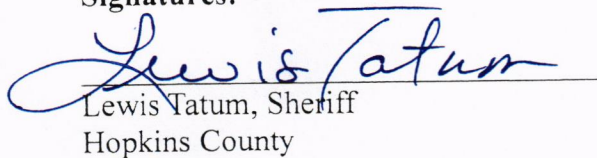 Signatures:
Lewis Tatum
Lewis Tatum, Sheriff
Hopkins County